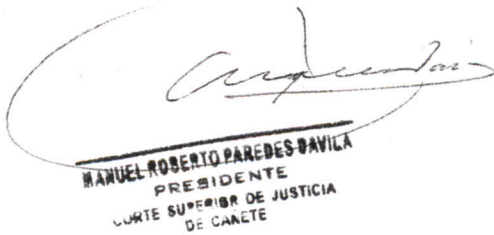 MANUEL ROBERTO PAREDES DAVILA
PRESIDENTE
CORTE SUPERIOR DE JUSTICIA
DE CAÑETE